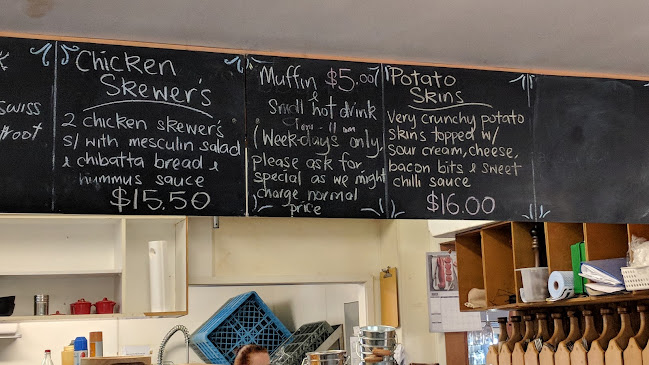 swiss
Root
Chicken
Skewer's
2 chicken skewer's
s/ with mesculin salad
& chibatta bread &
hummus sauce
$15.50
Muffin $5.00
&
Small hot drink
7am - 11 am
(Week-days only)
please ask for
special as we might
charge normal
price
Potato
Skins
very crunchy potato
skins topped w/
sour cream, cheese,
bacon bits & sweet
chilli sauce
$16.00